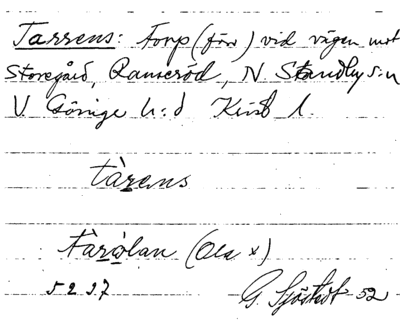 Tarrens: Torp (förr) vid vägen mot
Storegård, Ranseröd, N Strödby s:n
V Göinge h:d Krist l.
tàrens
tàròlan (Ola x)
5237
G. Sjöstedt 52